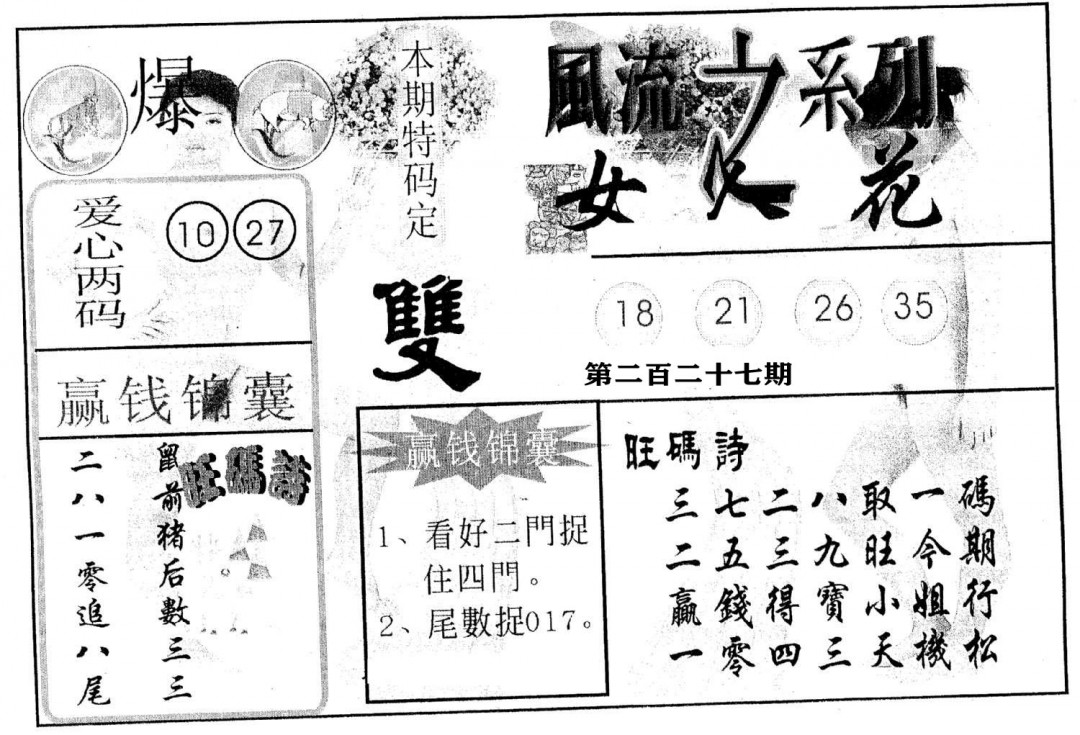 爆
本期特码定
雙
風流之系列
女人花
爱心两码
10 27
18 21 26 35
第二百二十七期
赢钱锦囊
旺碼詩
鼠前猪后數三三
二八一零追八尾
赢钱锦囊
1、看好二門捉
住四門。
2、尾數捉017。
旺碼詩
三七二八取一碼
二五三九旺今期
贏錢得寶小姐行
一零四三天機松